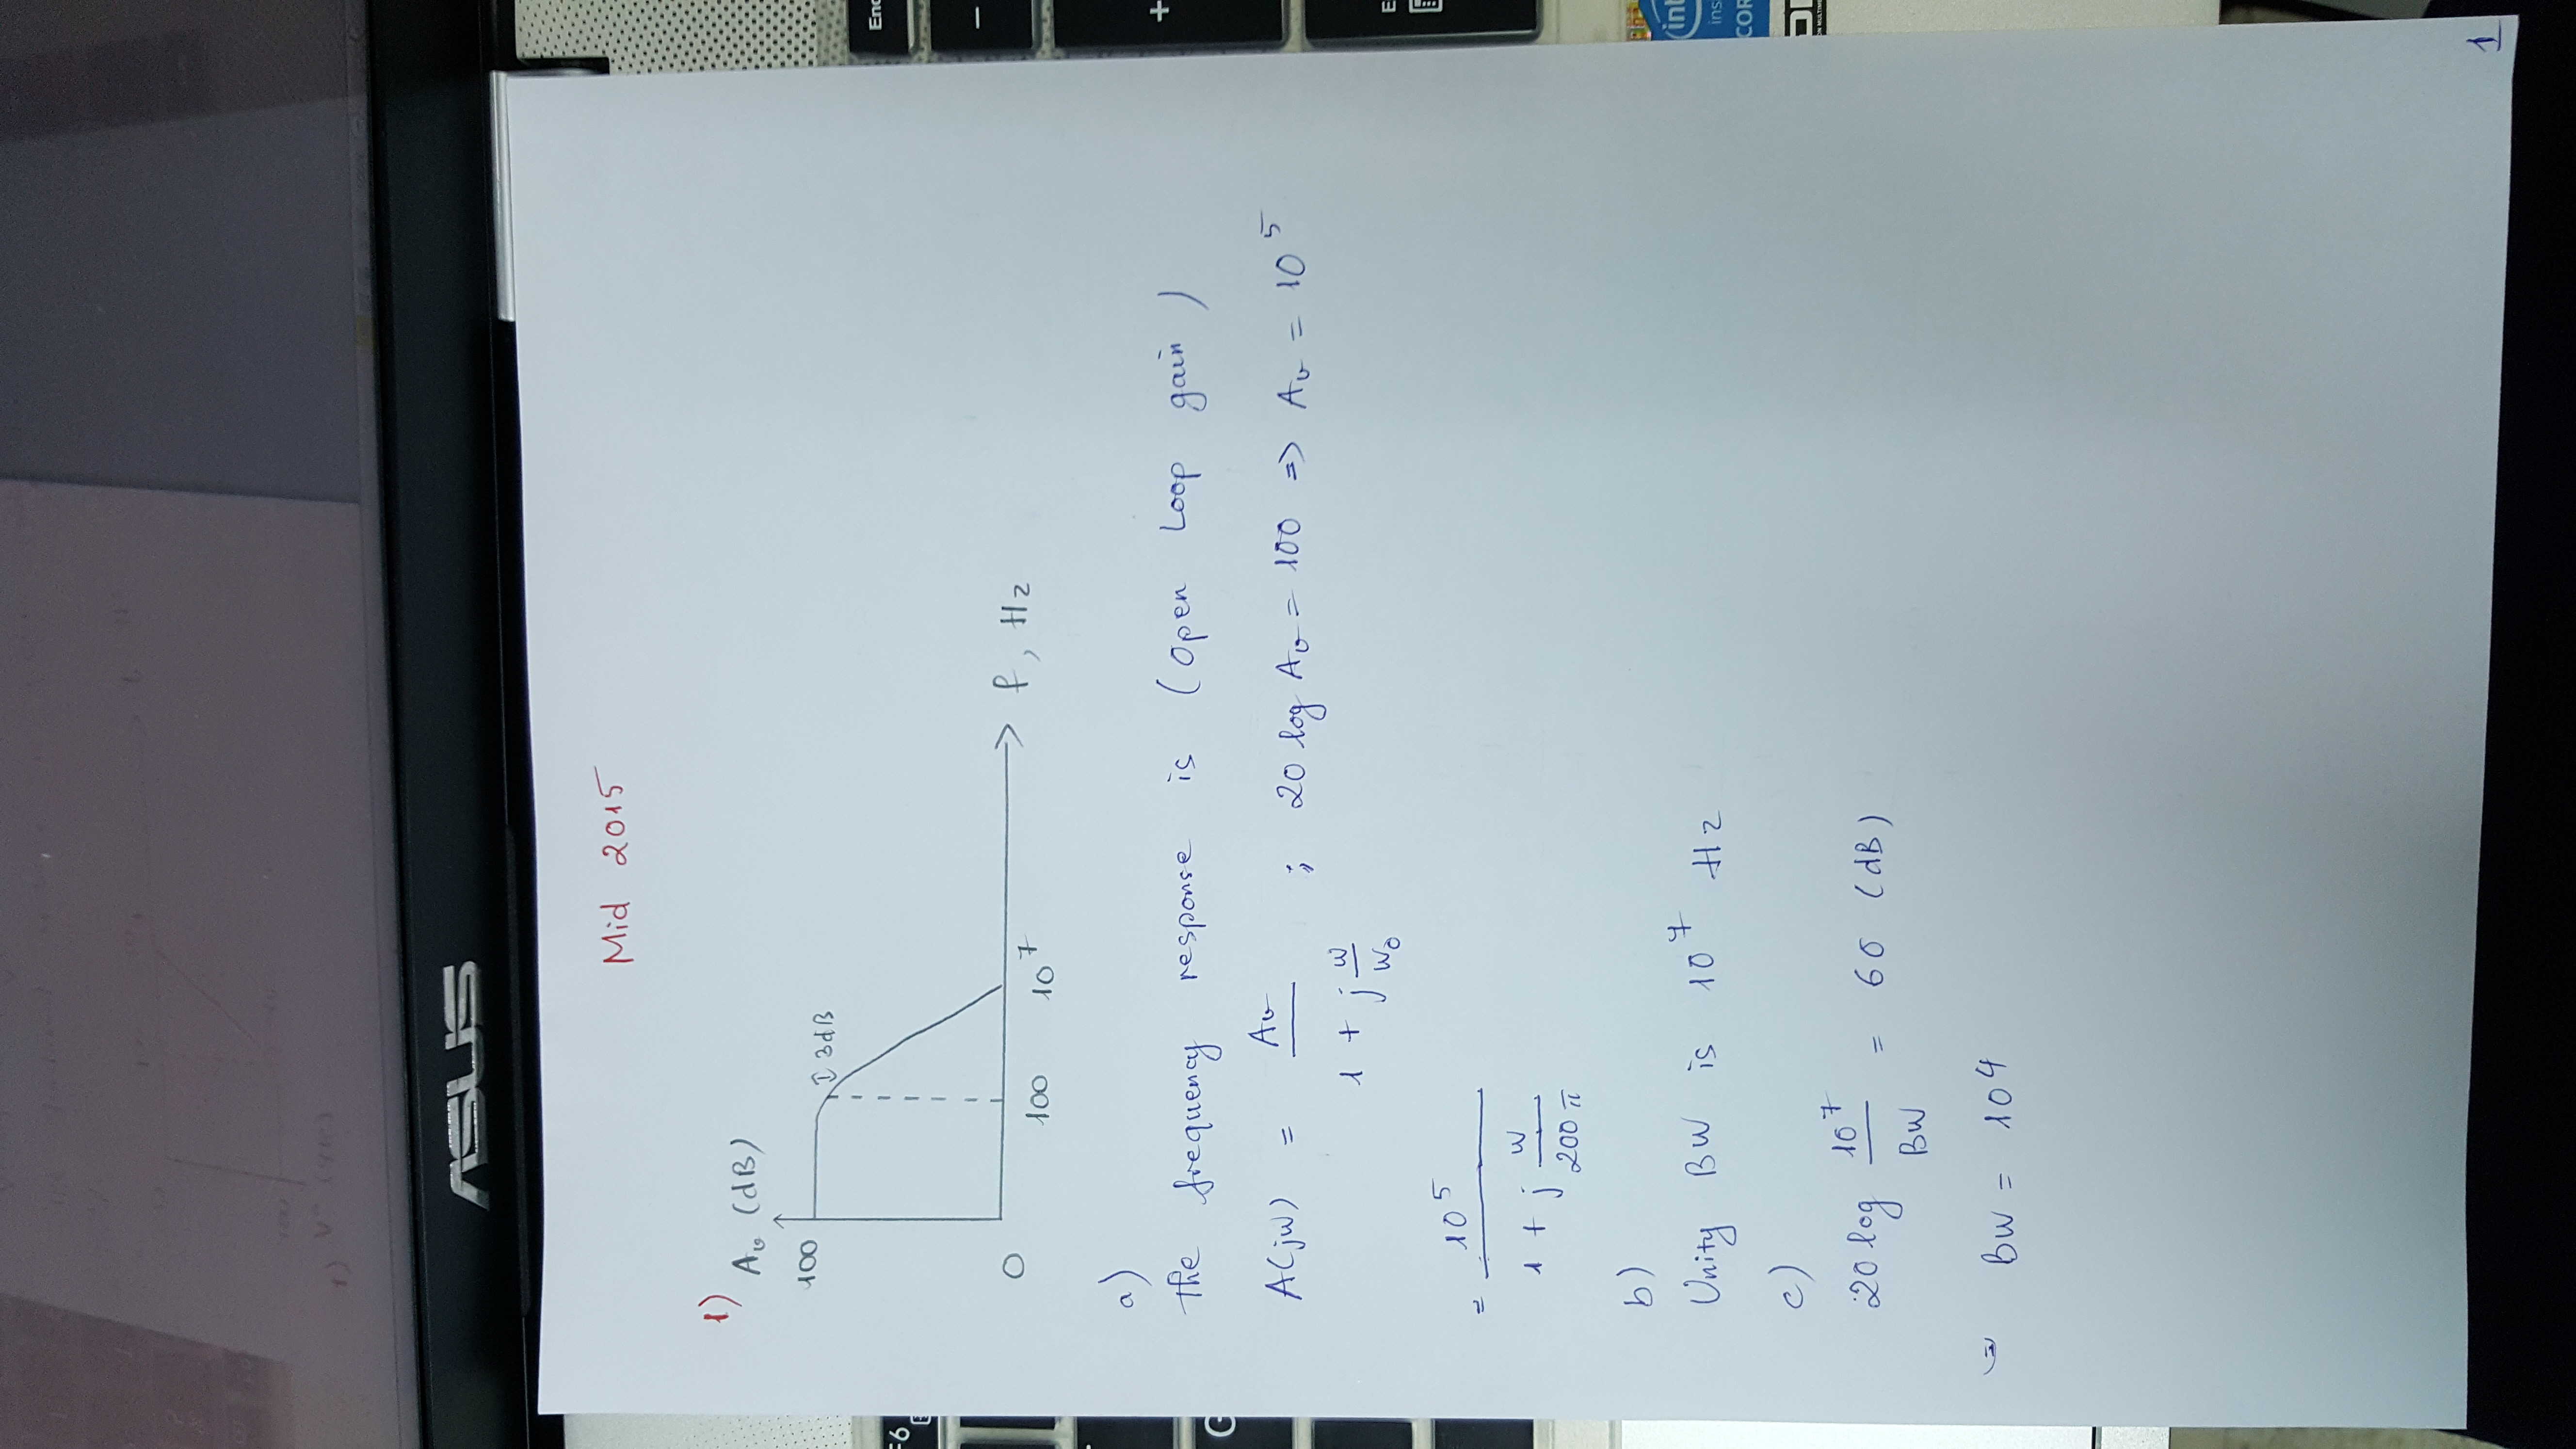 ASUS
Mid 2015
1)
Av (dB)
100
3dB
0
100
10^7
f, Hz
a)
The frequency response is (Open Loop gain)
A(jw) = Av / (1 + j w/w0) ; 20 log Av = 100 => Av = 10^5
= 10^5 / (1 + j w/200π)
b)
Unity BW is 10^7 Hz
c)
20 log 10^7/BW = 60 (dB)
=> BW = 10^4
1
F6
G
End
−
+
E
int
ins
COR